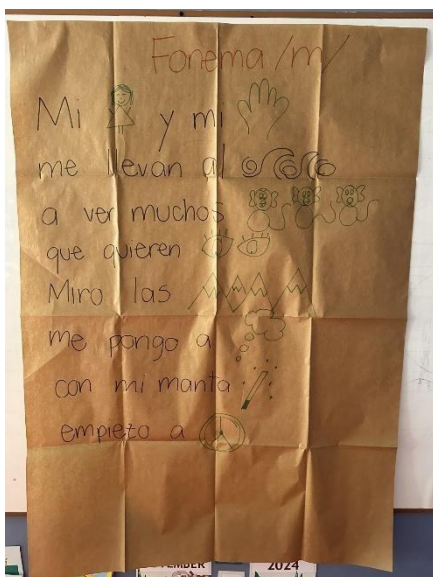 Fonema /m/
Mi y mi
me llevan al
a ver muchos
que quieren
Miro las
me pongo a
con mi manta
empiezo a
2024